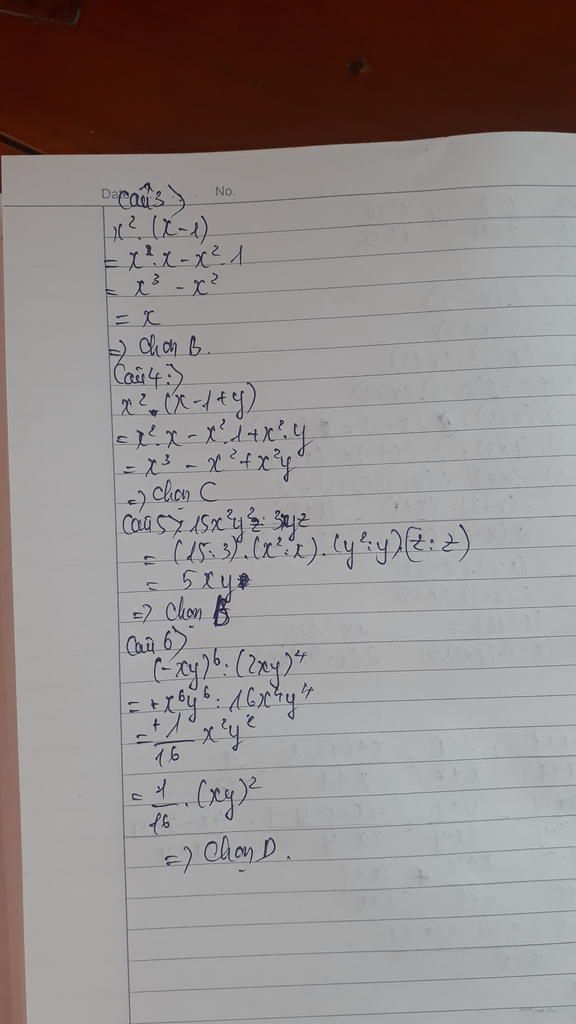 Da No.
Câu 3>
x². (x-1)
= x². x - x². 1
= x³ - x²
= x
=> Chọn B.
Câu 4:>
x². (x-1+y)
= x². x - x². 1 + x². y
= x³ - x² + x²y
=> Chọn C
Câu 5> 15x²y²z : 3xyz
= (15:3). (x²:x). (y²:y).(z:z)
= 5xy
=> Chọn B
Câu 6>
(-xy)⁶ : (2xy)⁴
= +x⁶y⁶ : 16x⁴y⁴
= +1/16 x²y²
= 1/16 . (xy)²
=> Chọn D.